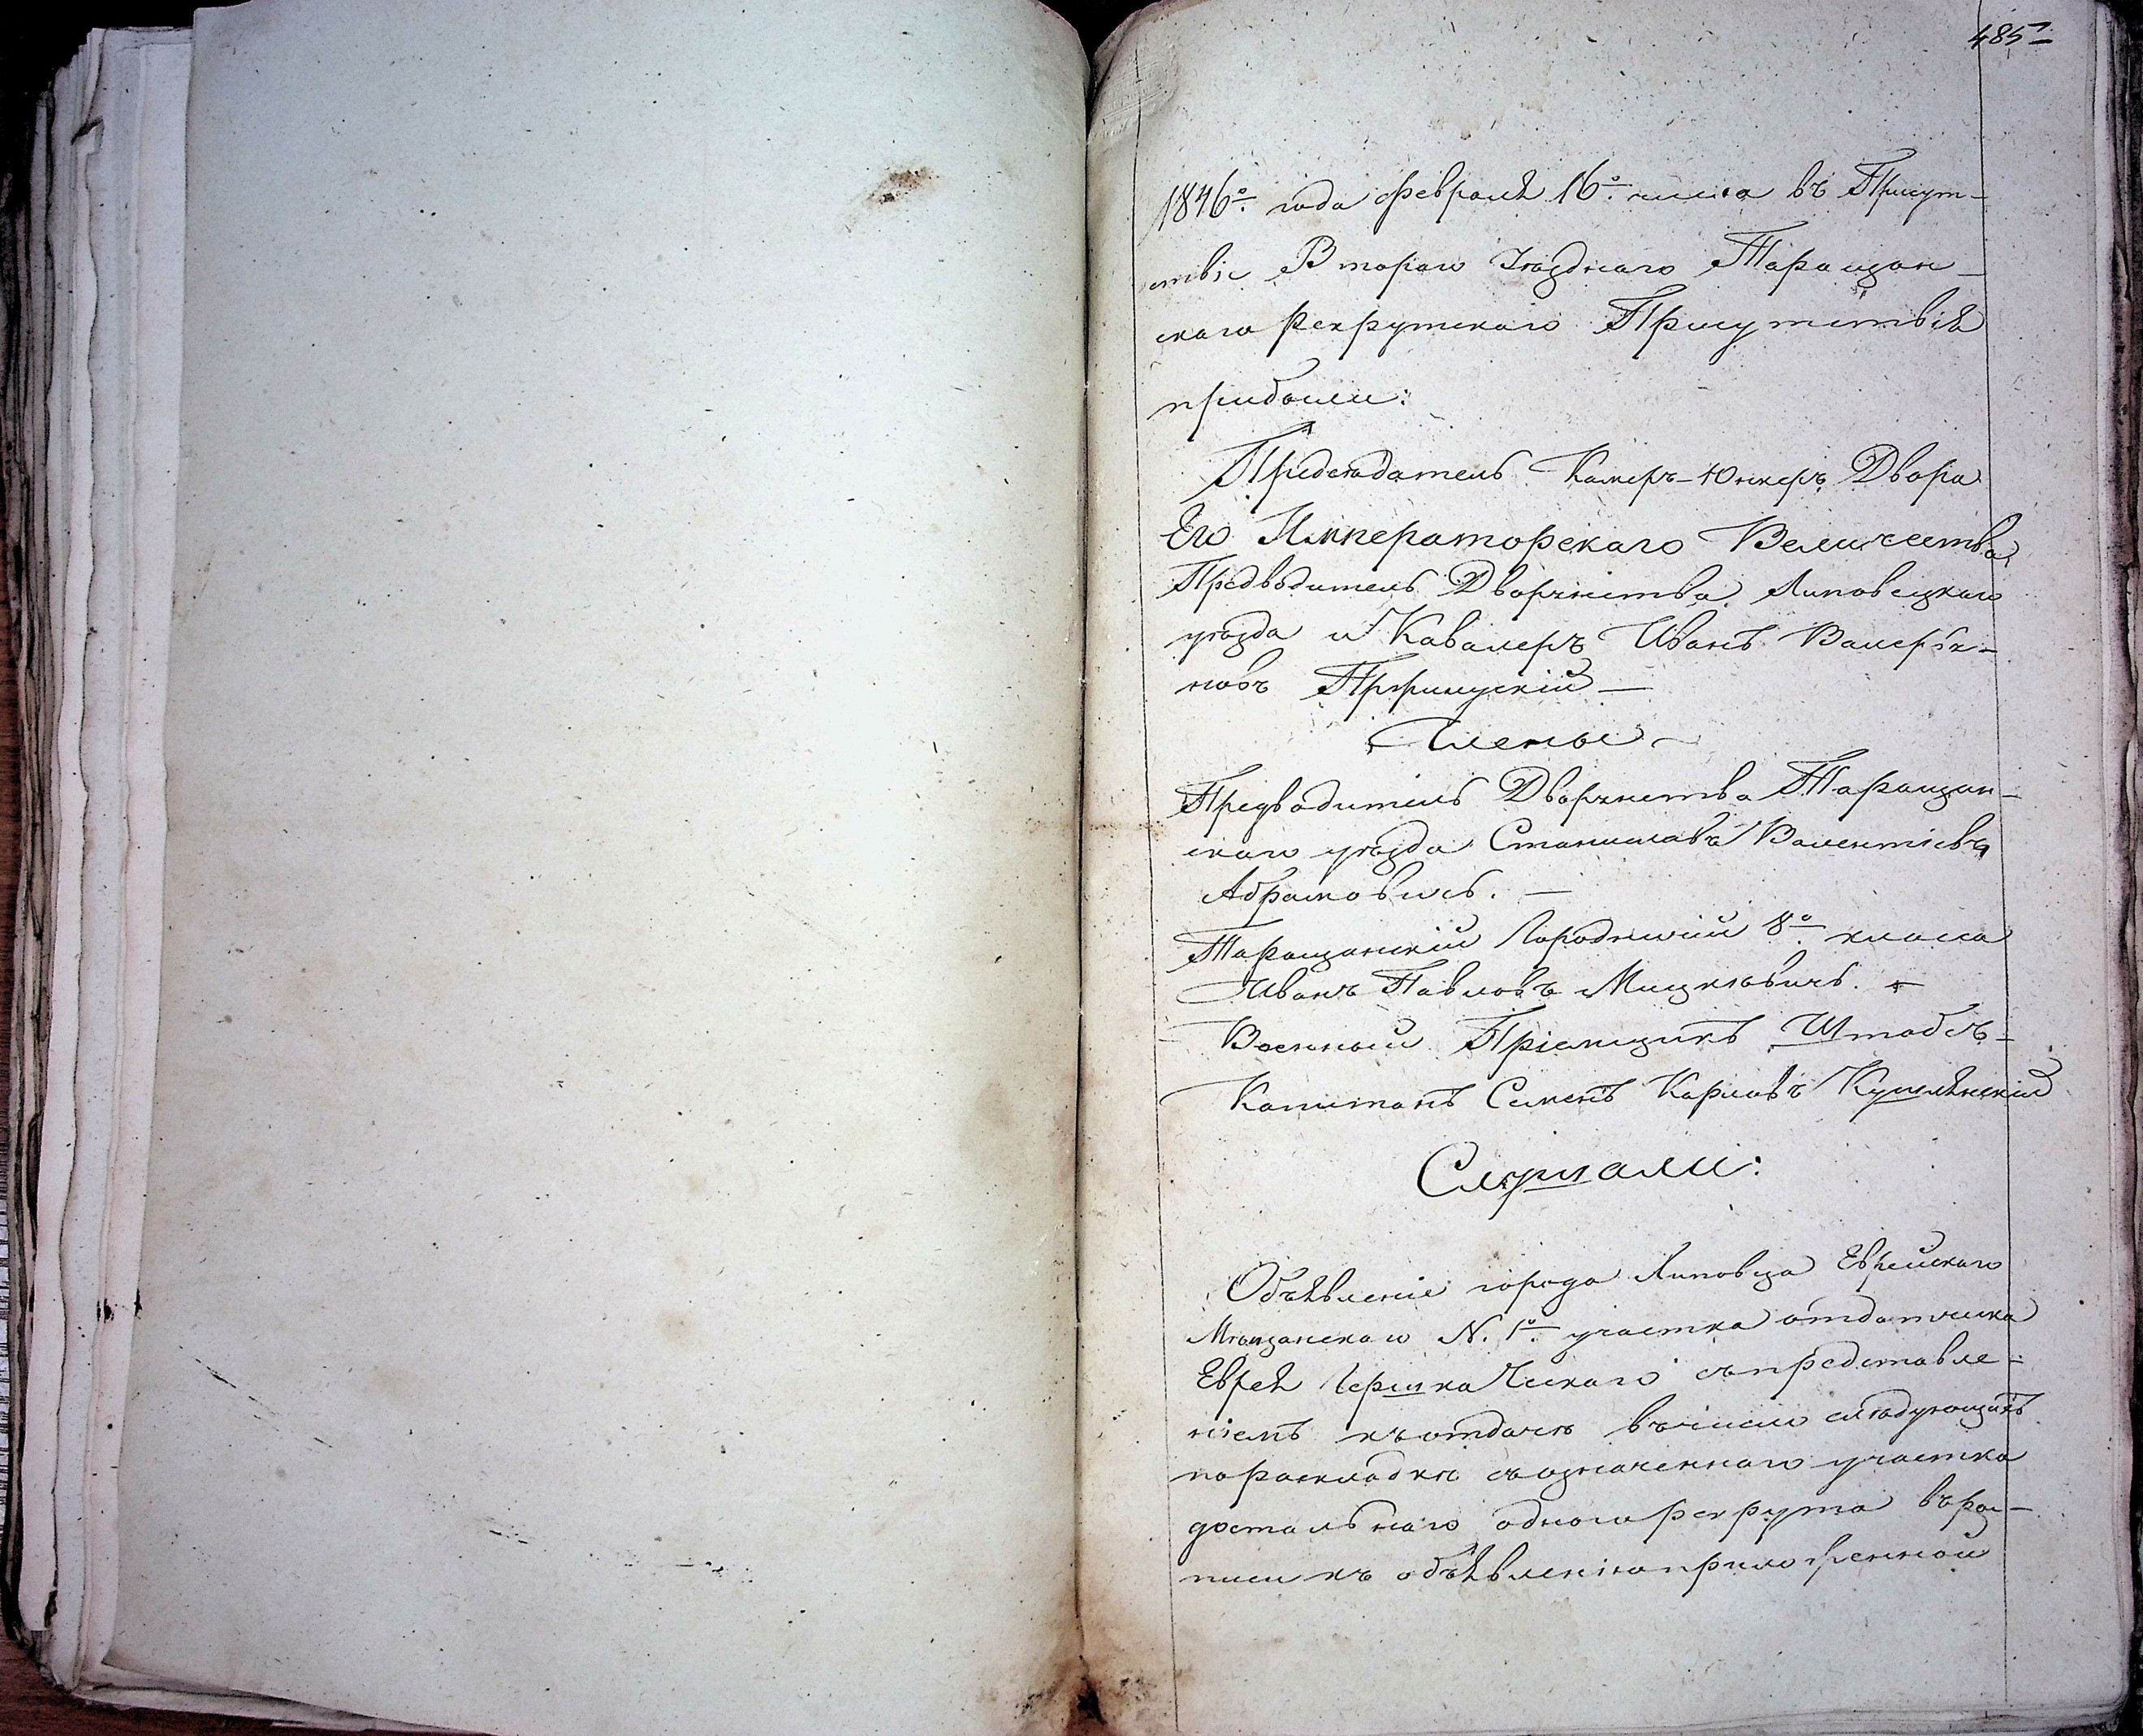 485
1846º года Февраля 16º числа въ Присут-
ствіе Втораго Уѣзднаго Таращан-
скаго Рекрутскаго Присутствія
прибыли:
Предсѣдатель Камеръ-Юнкеръ Двора
Его Императорскаго Величества
Предводитель Дворянства Липовецкаго
уѣзда и Кавалеръ Иванъ Валерья-
новъ
Члены
Предводитель Дворянства Таращан-
скаго уѣзда Станиславъ Валентіевъ
Абрамовичь. —
Таращанскій Городничій 8º класса
Иванъ Павловъ Мицкѣвичь.
Военный Пріемщикъ Штабсъ-
Капитанъ Семенъ Карловъ
Слушали:
Объявленіе города Липовца Еврейскаго
Мѣщанскаго N. 1º участка отдатчика
Еврея Гершка съ представле-
ніемъ къ отдачѣ въ число слѣдующихъ
по раскладкѣ съ означеннаго участка
достальнаго одного рекрута въ рос-
писи къ объявленію приложенной